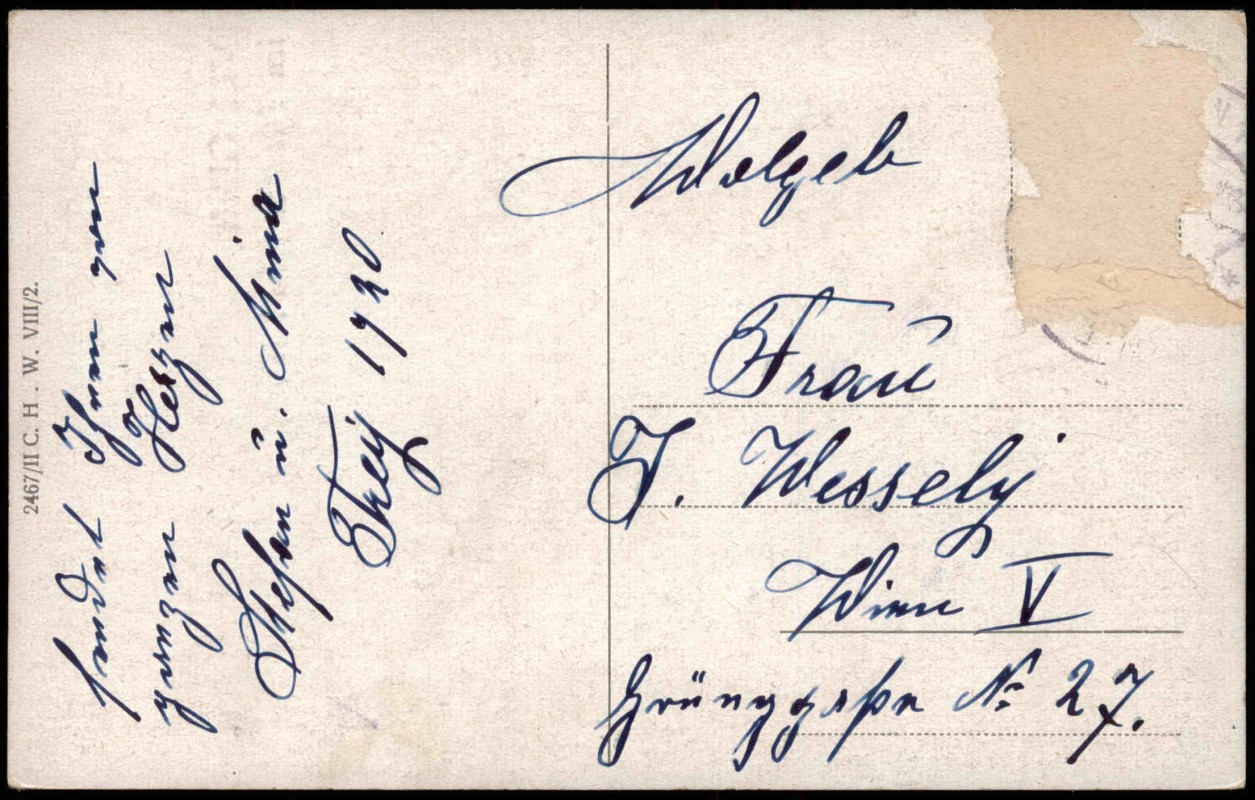 2467/II C. H. W. VIII/2.
sendet Ihnen von
ganzen Herzen
Stefan u. Mina
1920
Wolgeb
Frau
J. Wessely
Wien V
Grüngasse No 27.